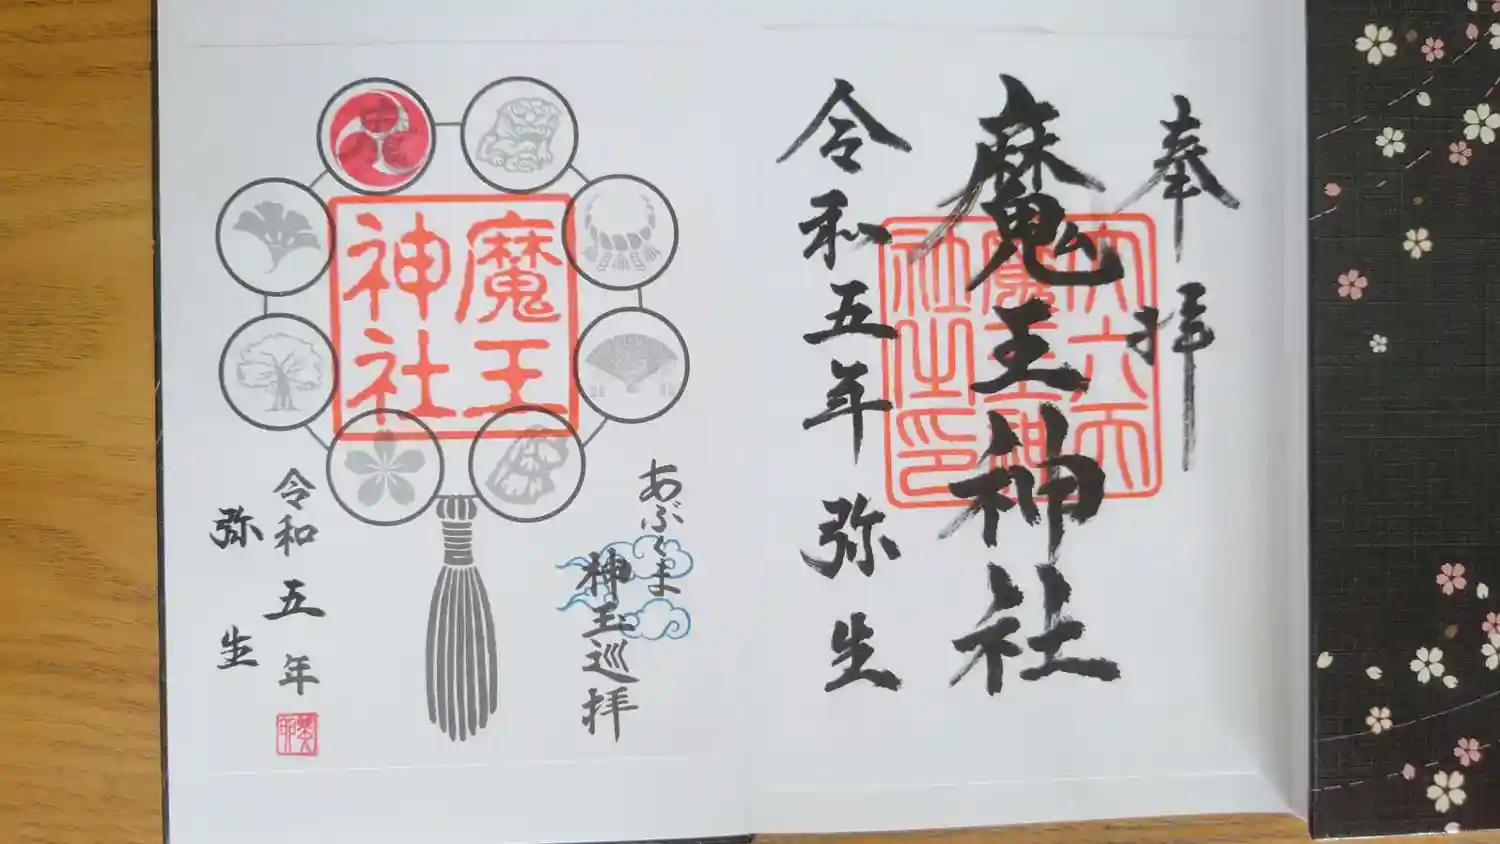 奉拝
魔王神社
令和五年弥生
第六天
魔王神
社之印
魔王
神社
あぶくま
神玉巡拝
令和五年
弥生